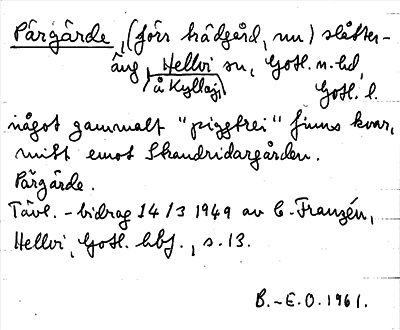 Pärgärde, (förr trädgård, nu) slåtter-
äng, Hellvi sn, Gotl. n. hd,
å Kyllaj, Gotl. l.
något gammalt "piggtrei" finns kvar,
mitt emot Skandridargården.
Pärgärde.
Tävl. - bidrag 14/3 1949 av C. Franzén,
Hellvi, Gotl. hbf., s. 13.
B.-E.O. 1961.